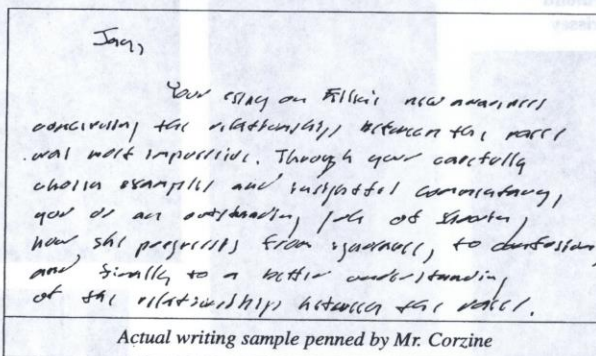 rissey
Your essay on new awareness
concerning the relationships between the races
was most impressive. Through your carefully
chosen examples and insightful commentary,
you do an outstanding job of showing
how she progresses from ignorance, to confusion,
and finally to a better understanding
of the relationships between the races.
Actual writing sample penned by Mr. Corzine